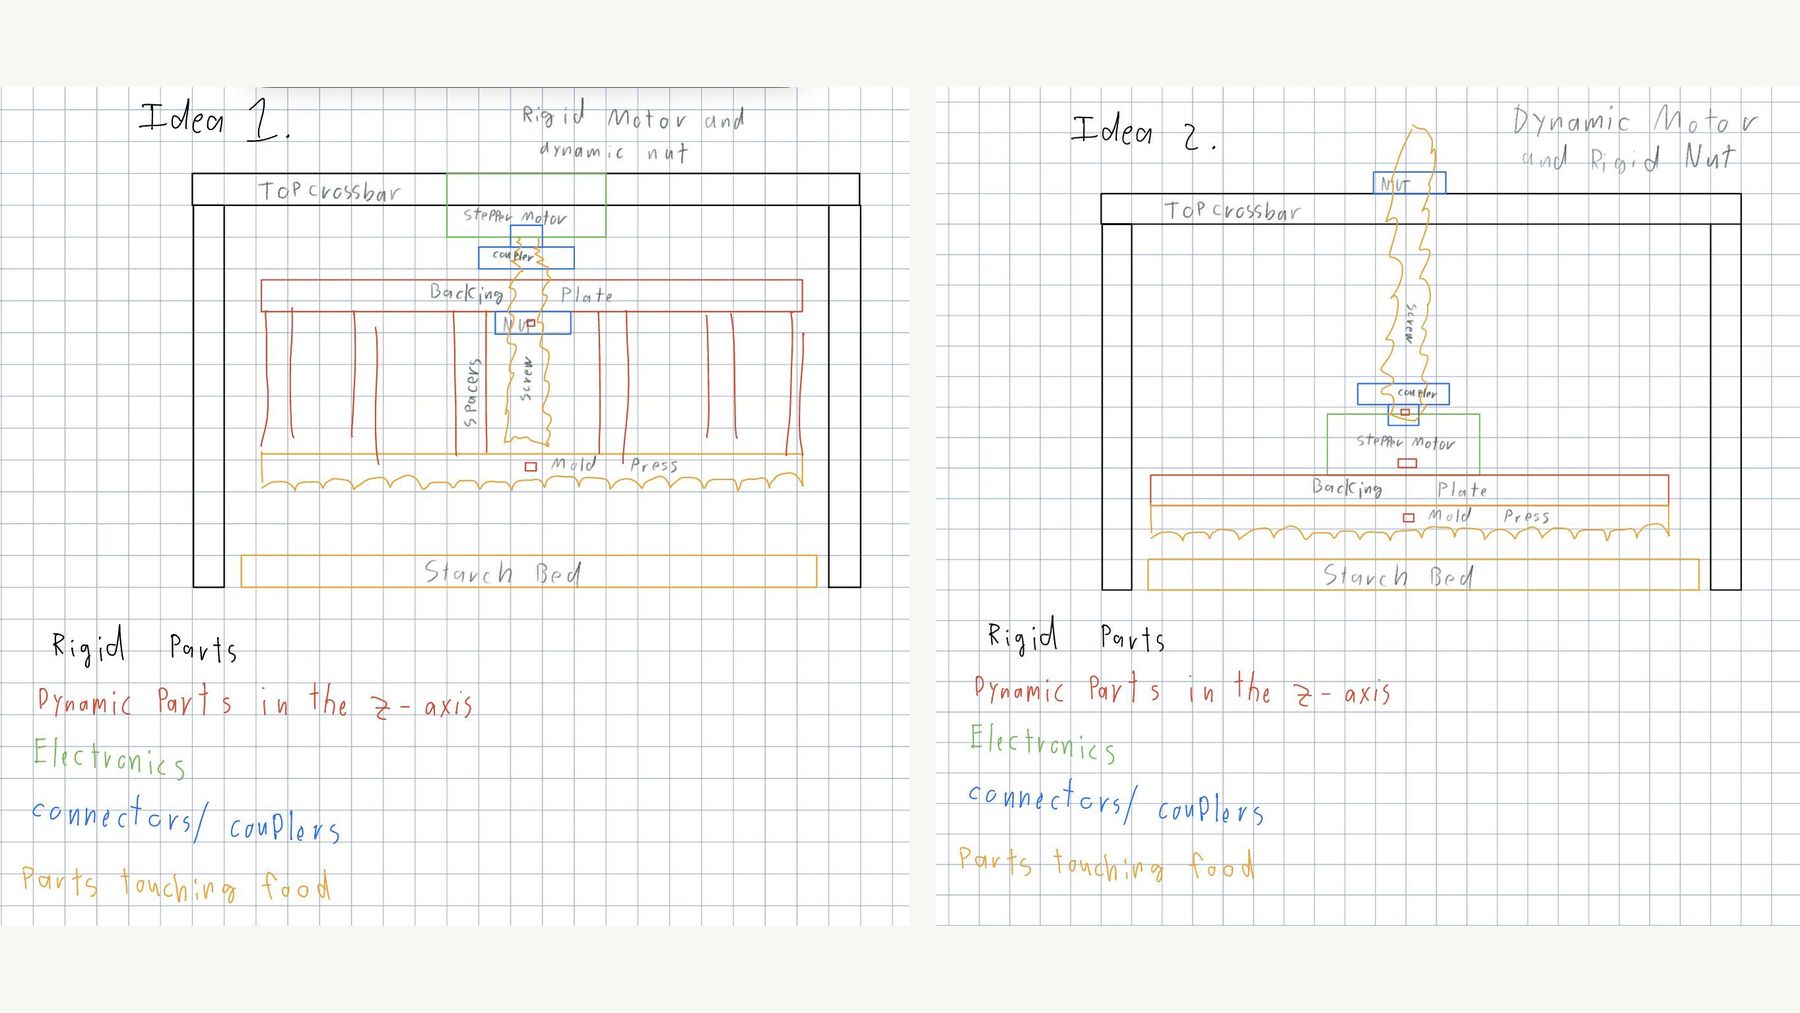 Idea 1.
Rigid Motor and
dynamic nut
Top crossbar
Stepper Motor
coupler
Backing Plate
NUT
Spacers
Screw
Mold Press
Starch Bed
Rigid Parts
Dynamic Parts in the z-axis
Electronics
connectors/ couplers
Parts touching food
Idea 2.
Dynamic Motor
and Rigid Nut
NUT
Top crossbar
Screw
coupler
Stepper Motor
Backing Plate
Mold Press
Starch Bed
Rigid Parts
Dynamic Parts in the z-axis
Electronics
connectors/ couplers
Parts touching food